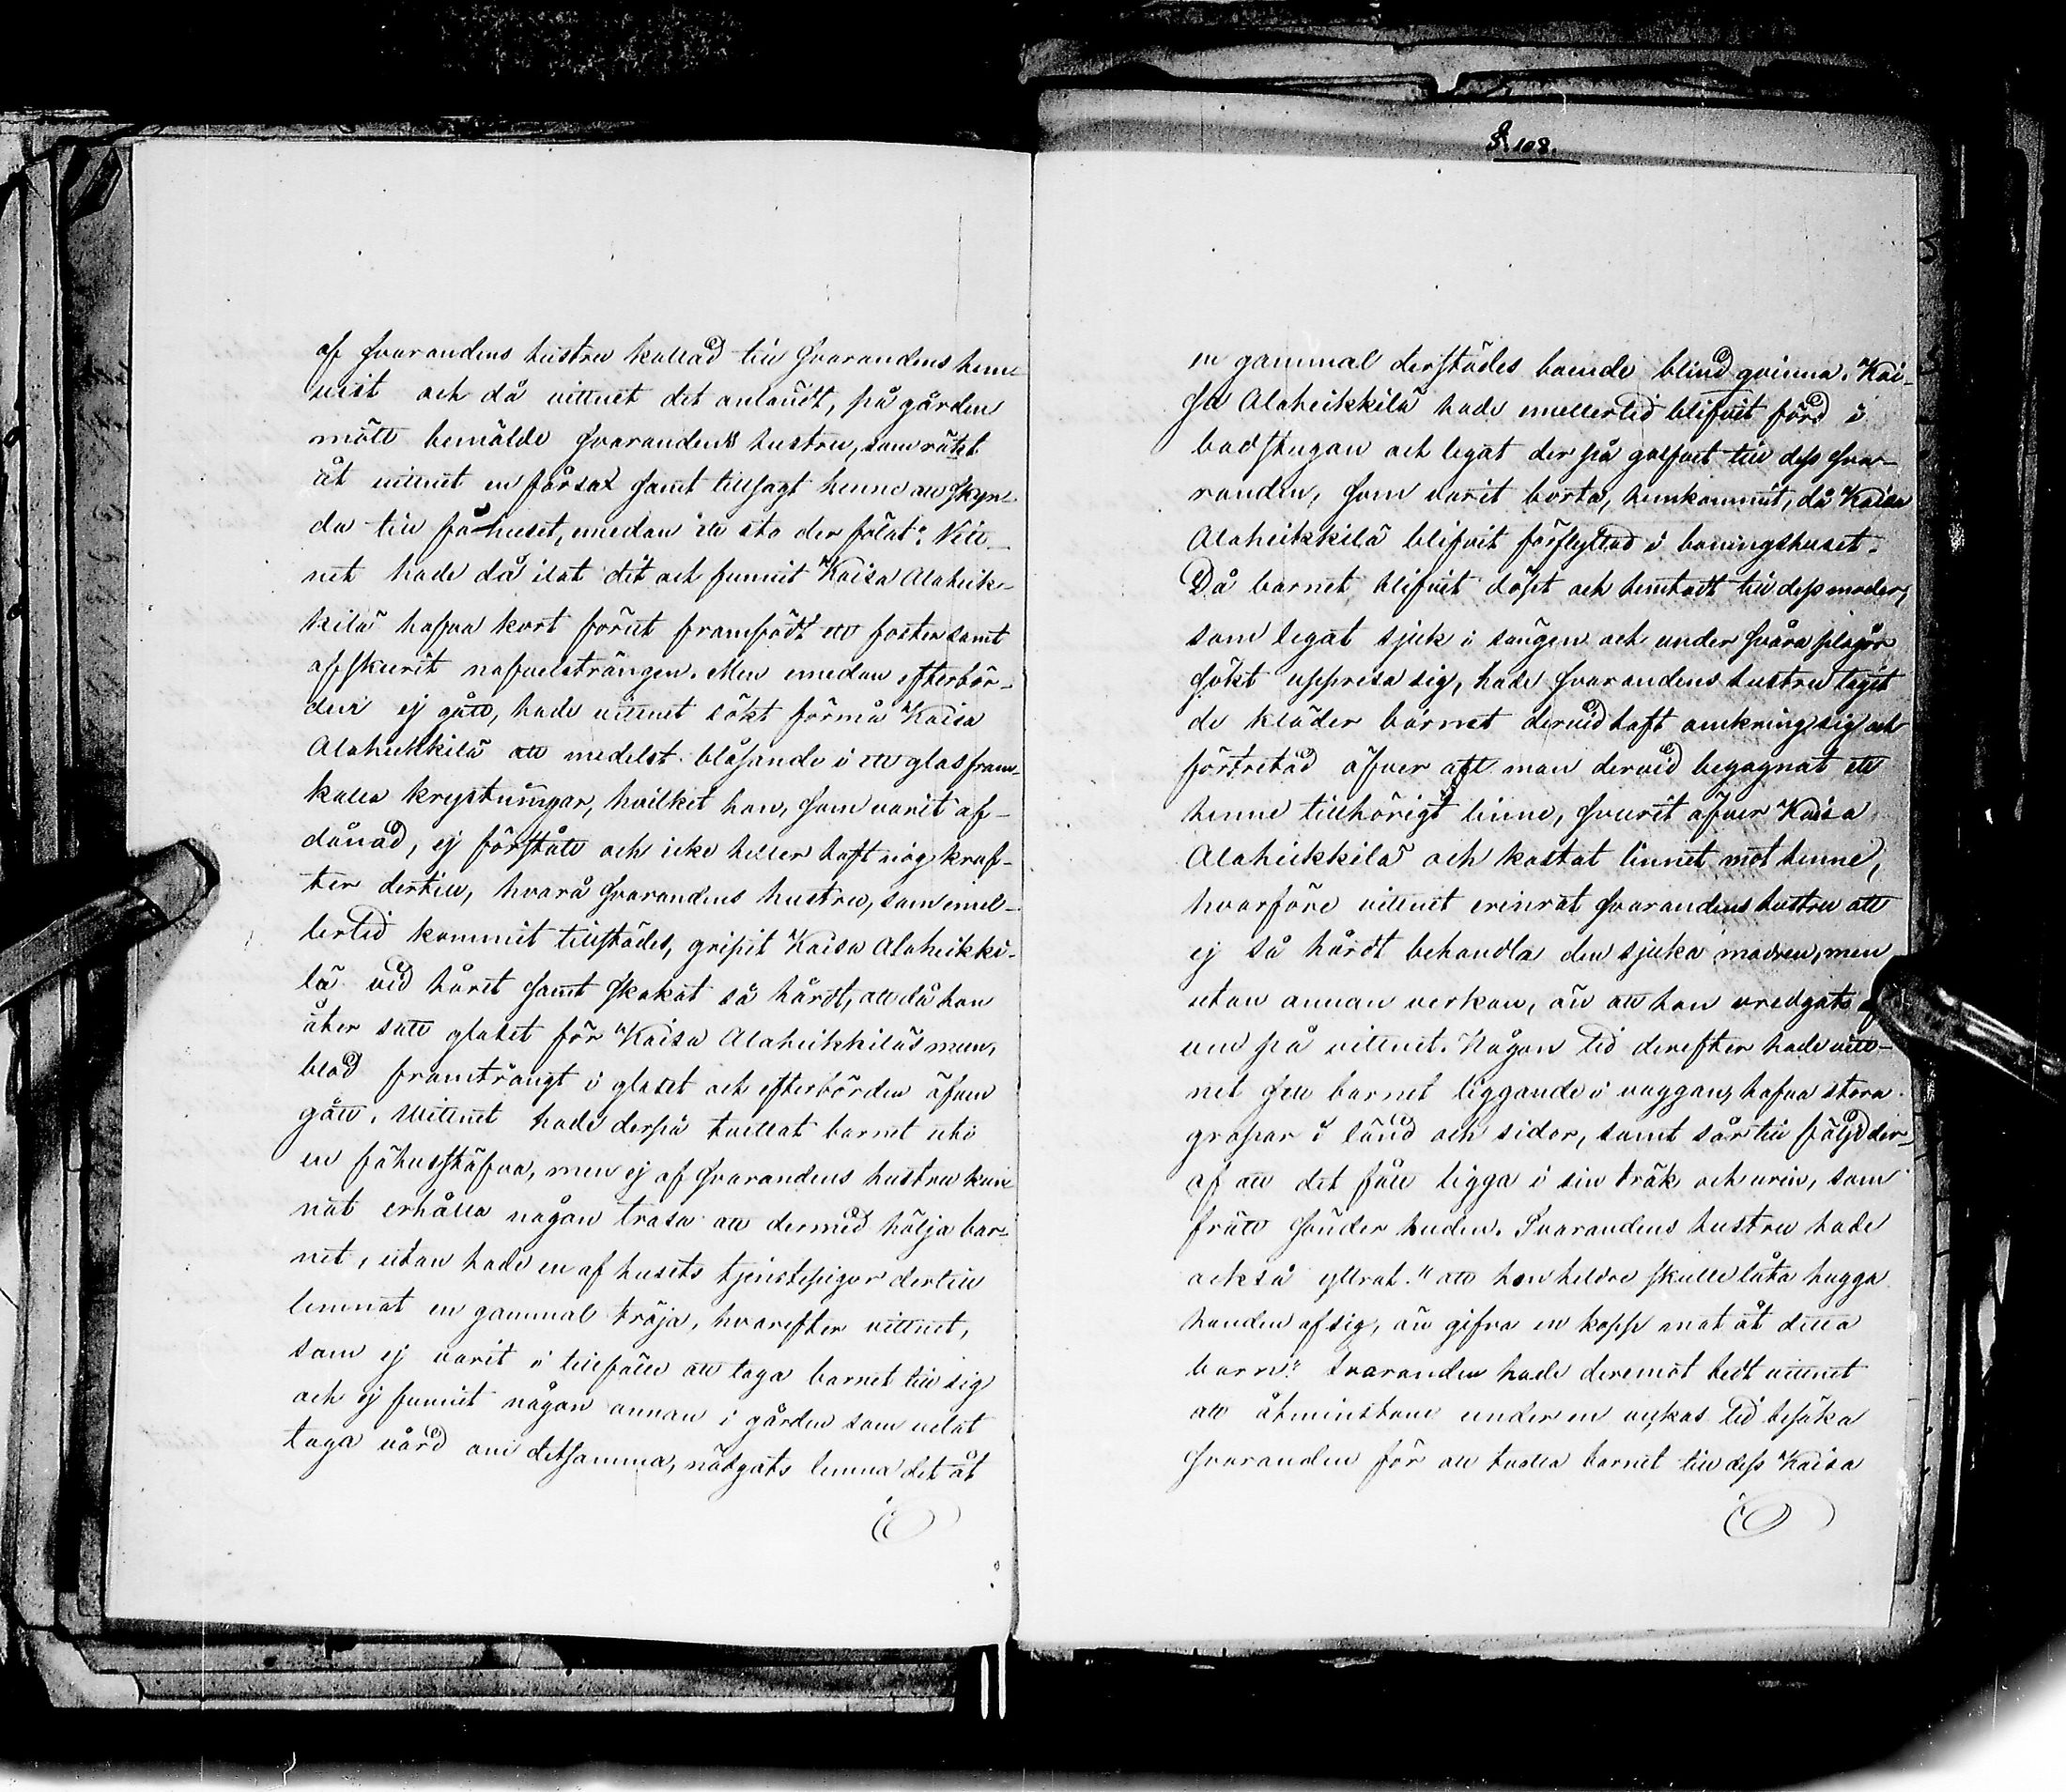 af svarandens hustru kallad till svarandens hem
vist och då vittnet dit anländt, på gården
mött bemälde svarandens hustru, som räckt
åt vittnet en fårsax samt tillsagt henne att skyn-
da till fähuset, emedan "ett sto der fölat". Vitt-
net hade då ilat dit och funnit Kaisa Alaheik-
kilä hafva kort förut framfödt ett foster samt
afskurit nafvelsträngen. Men emedan efterbör-
den ej gått, hade vittnet sökt förmå Kaisa
Alaheikkilä att medelst blåsande i ett glas fram-
kalla krystningar, hvilket hon, som varit af-
dånad, ej förstått och icke heller haft nog kraf-
ter dertill, hvarå svarandens hustru, som emel-
lertid kommit tillstädes, gripit Kaisa Alaheikki-
lä vid håret samt skakat så hårdt, att då hon
åter satt glaset för Kaisa Alaheikkiläs mun,
blod framträngt i glaset och efterbörden äfven
gått. Wittnet hade derpå tvättat barnet uti
en fähusstäfva, men ej af svarandens hustru kun
nat erhålla någon trasa att dermed hölja bar-
net, utan hade en af husets tjenstepigor dertill
lemnat en gammal tröja, hvarefter vittnet,
som ej varit i tillfälle att taga barnet till sig
och ej funnit någon annan i gården som velat
taga vård om detsamma, nödgats lemna det åt
§. 108.
en gammal derstädes boende blind qvinna. Kai-
sa Alaheikkilä hade emellertid blifvit förd i
badstugan och legat der på golfvet till dess sva-
randen, som varit borta, hemkommit, då Kaisa
Alaheikkilä blifvit förflyttad i boningshuset.
Då barnet blifvit döpt och hemtadt till dess moder,
som legat sjuk i sängen och under svåra plågor
sökt uppresa sig, hade svarandens hustru tagit
de kläder barnet dervid haft omkring sig och
förtretad öfver att man dervid begagnat ett
henne tillhörigt linne, svurit öfver Kaisa
Alaheikkilä och kastat linnet mot henne,
hvarföre vittnet erinrat svarandens hustru att
ej så hårdt behandla den sjuka modren, men
utan annan verkan, än att hon vredgats
ven på vittnet. Någon tid derefter hade vitt-
net sett barnet liggande i vaggan, hafva stora
gropar i länd och sidor, samt sår till följd der-
af att det fått ligga i sin träck och urin, som
frätt sönder huden. Svarandens hustru hade
också yttrat: "att hon heldre skulle låta hugga
handen af sig, än gifva en kopp mat åt detta
barn". Svaranden hade deremot bedt vittnet
att åtminstone under en veckas tid besöka
svaranden för att tvätta barnet till dess Kaisa